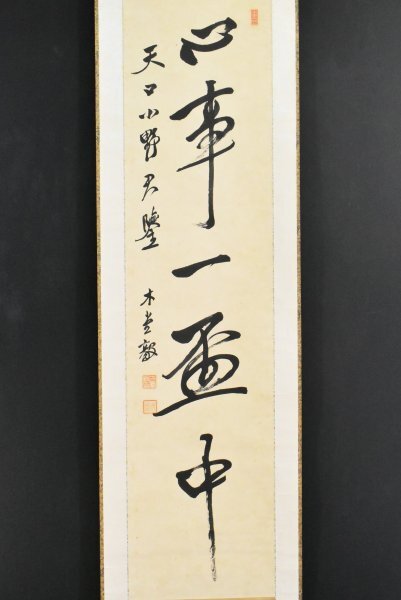 心事一盃中
天口小野君鑒
木堂毅